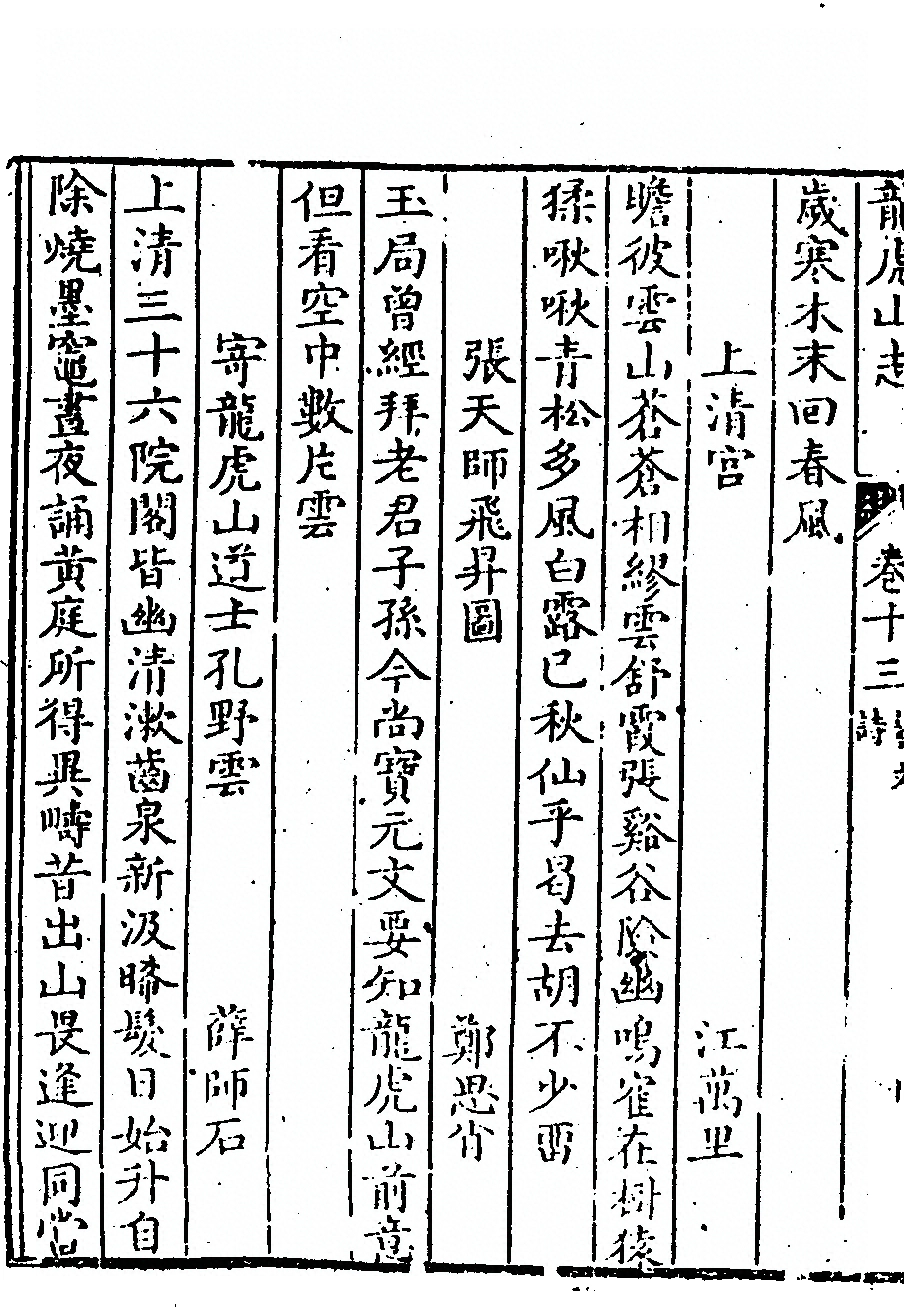 龍虎山志 卷十三 詩
歲寒木末回春風
上清宮 江萬里
瞻彼雲山蒼蒼相繆雲舒霞張谿谷陰幽鳴寉在樹猿
猱啾啾青松多風白露已秋仙乎曷去胡不少畱
張天師飛昇圖 鄭思肖
玉局曾經拜老君子孫今尚寶元文要知龍虎山前意
但看空中數片雲
寄龍虎山道士孔野雲 薛師石
上清三十六院閣皆幽清漱齒泉新汲晞髮日始升自
除燒墨竈晝夜誦黃庭所得異疇昔出山畏逢迎同嘗